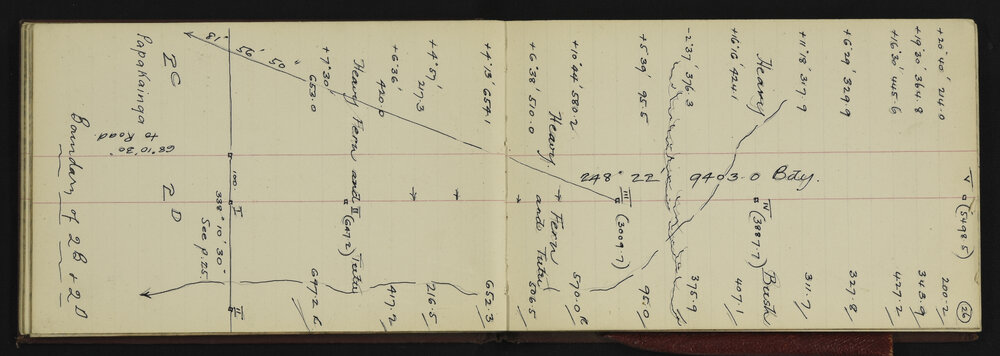 26
V (5498.5)
+20°40' 214.0 200.2
+19°30' 364.8 343.9
+16°30' 445.6 427.2
+6°29' 329.9 327.8
+11°18' 317.9 311.7
Heavy IV (3887.7) Bush
+16°16' 424.1 407.1
-2°37' 376.3 375.9
248° 22' 9403.0 Bdy.
+5°39' 95.5 95.0
III (3009.7)
+10°44' 580.2 570.0 R
Heavy Fern and Tutu
+6°38' 510.0 506.5
+4°13' 654.1 652.3
+4°57' 217.3 216.5
+6°36' 420.0 417.2
Heavy Fern and Tutu
II (647.2)
+7°30' 653.0 647.2 R
I II
100
338° 10' 30"
See p. 25.
68° 10' 30"
to Road.
2C
Papakainga
2D
Boundary of 2B + 2D